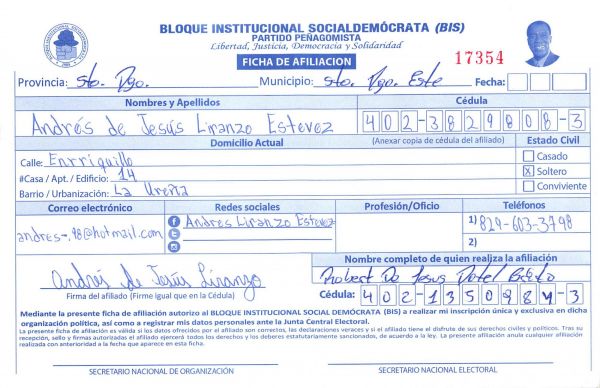 BLOQUE INSTITUCIONAL SOCIALDEMÓCRATA (BIS)
PARTIDO PEÑAGOMISTA
Libertad, Justicia, Democracia y Solidaridad
FICHA DE AFILIACION
17354
Provincia: Sto. Dgo. Municipio: Sto. Dgo. Este Fecha:
Nombres y Apellidos Cédula
Andrés de Jesús Liranzo Estevez 402-3829808-3
Domicilio Actual (Anexar copia de cédula del afiliado) Estado Civil
Calle: Enrriquillo
#Casa / Apt. / Edificio: 14
Barrio / Urbanización: La Ureña
Casado
X Soltero
Conviviente
Correo electrónico Redes sociales Profesión/Oficio Teléfonos
andres-.98@hotmail.com Andres Liranzo Estevez 1) 829-603-3798
2)
Andrés de Jesús Liranzo
Firma del afiliado (Firme igual que en la Cédula)
Nombre completo de quien realiza la afiliación
Robert De Jesus
Cédula: 402-1350984-3
Mediante la presente ficha de afiliación autorizo al BLOQUE INSTITUCIONAL SOCIAL DEMÓCRATA (BIS) a realizar mi inscripción única y exclusiva en dicha
organización política, así como a registrar mis datos personales ante la Junta Central Electoral.
La presente ficha de afiliación es válida si los datos ofrecidos por el afiliado son correctos, las declaraciones veraces y si el afiliado tiene el disfrute de sus derechos civiles y políticos. Tras su
recepción, sello y firmas autorizadas el afiliado ejercerá todos los derechos y los deberes estatutariamente sancionados, de acuerdo a la ley. La presente afiliación anula cualquier afiliación
realizada con anterioridad a la fecha que aparece en esta ficha.
SECRETARIO NACIONAL DE ORGANIZACIÓN SECRETARIO NACIONAL ELECTORAL